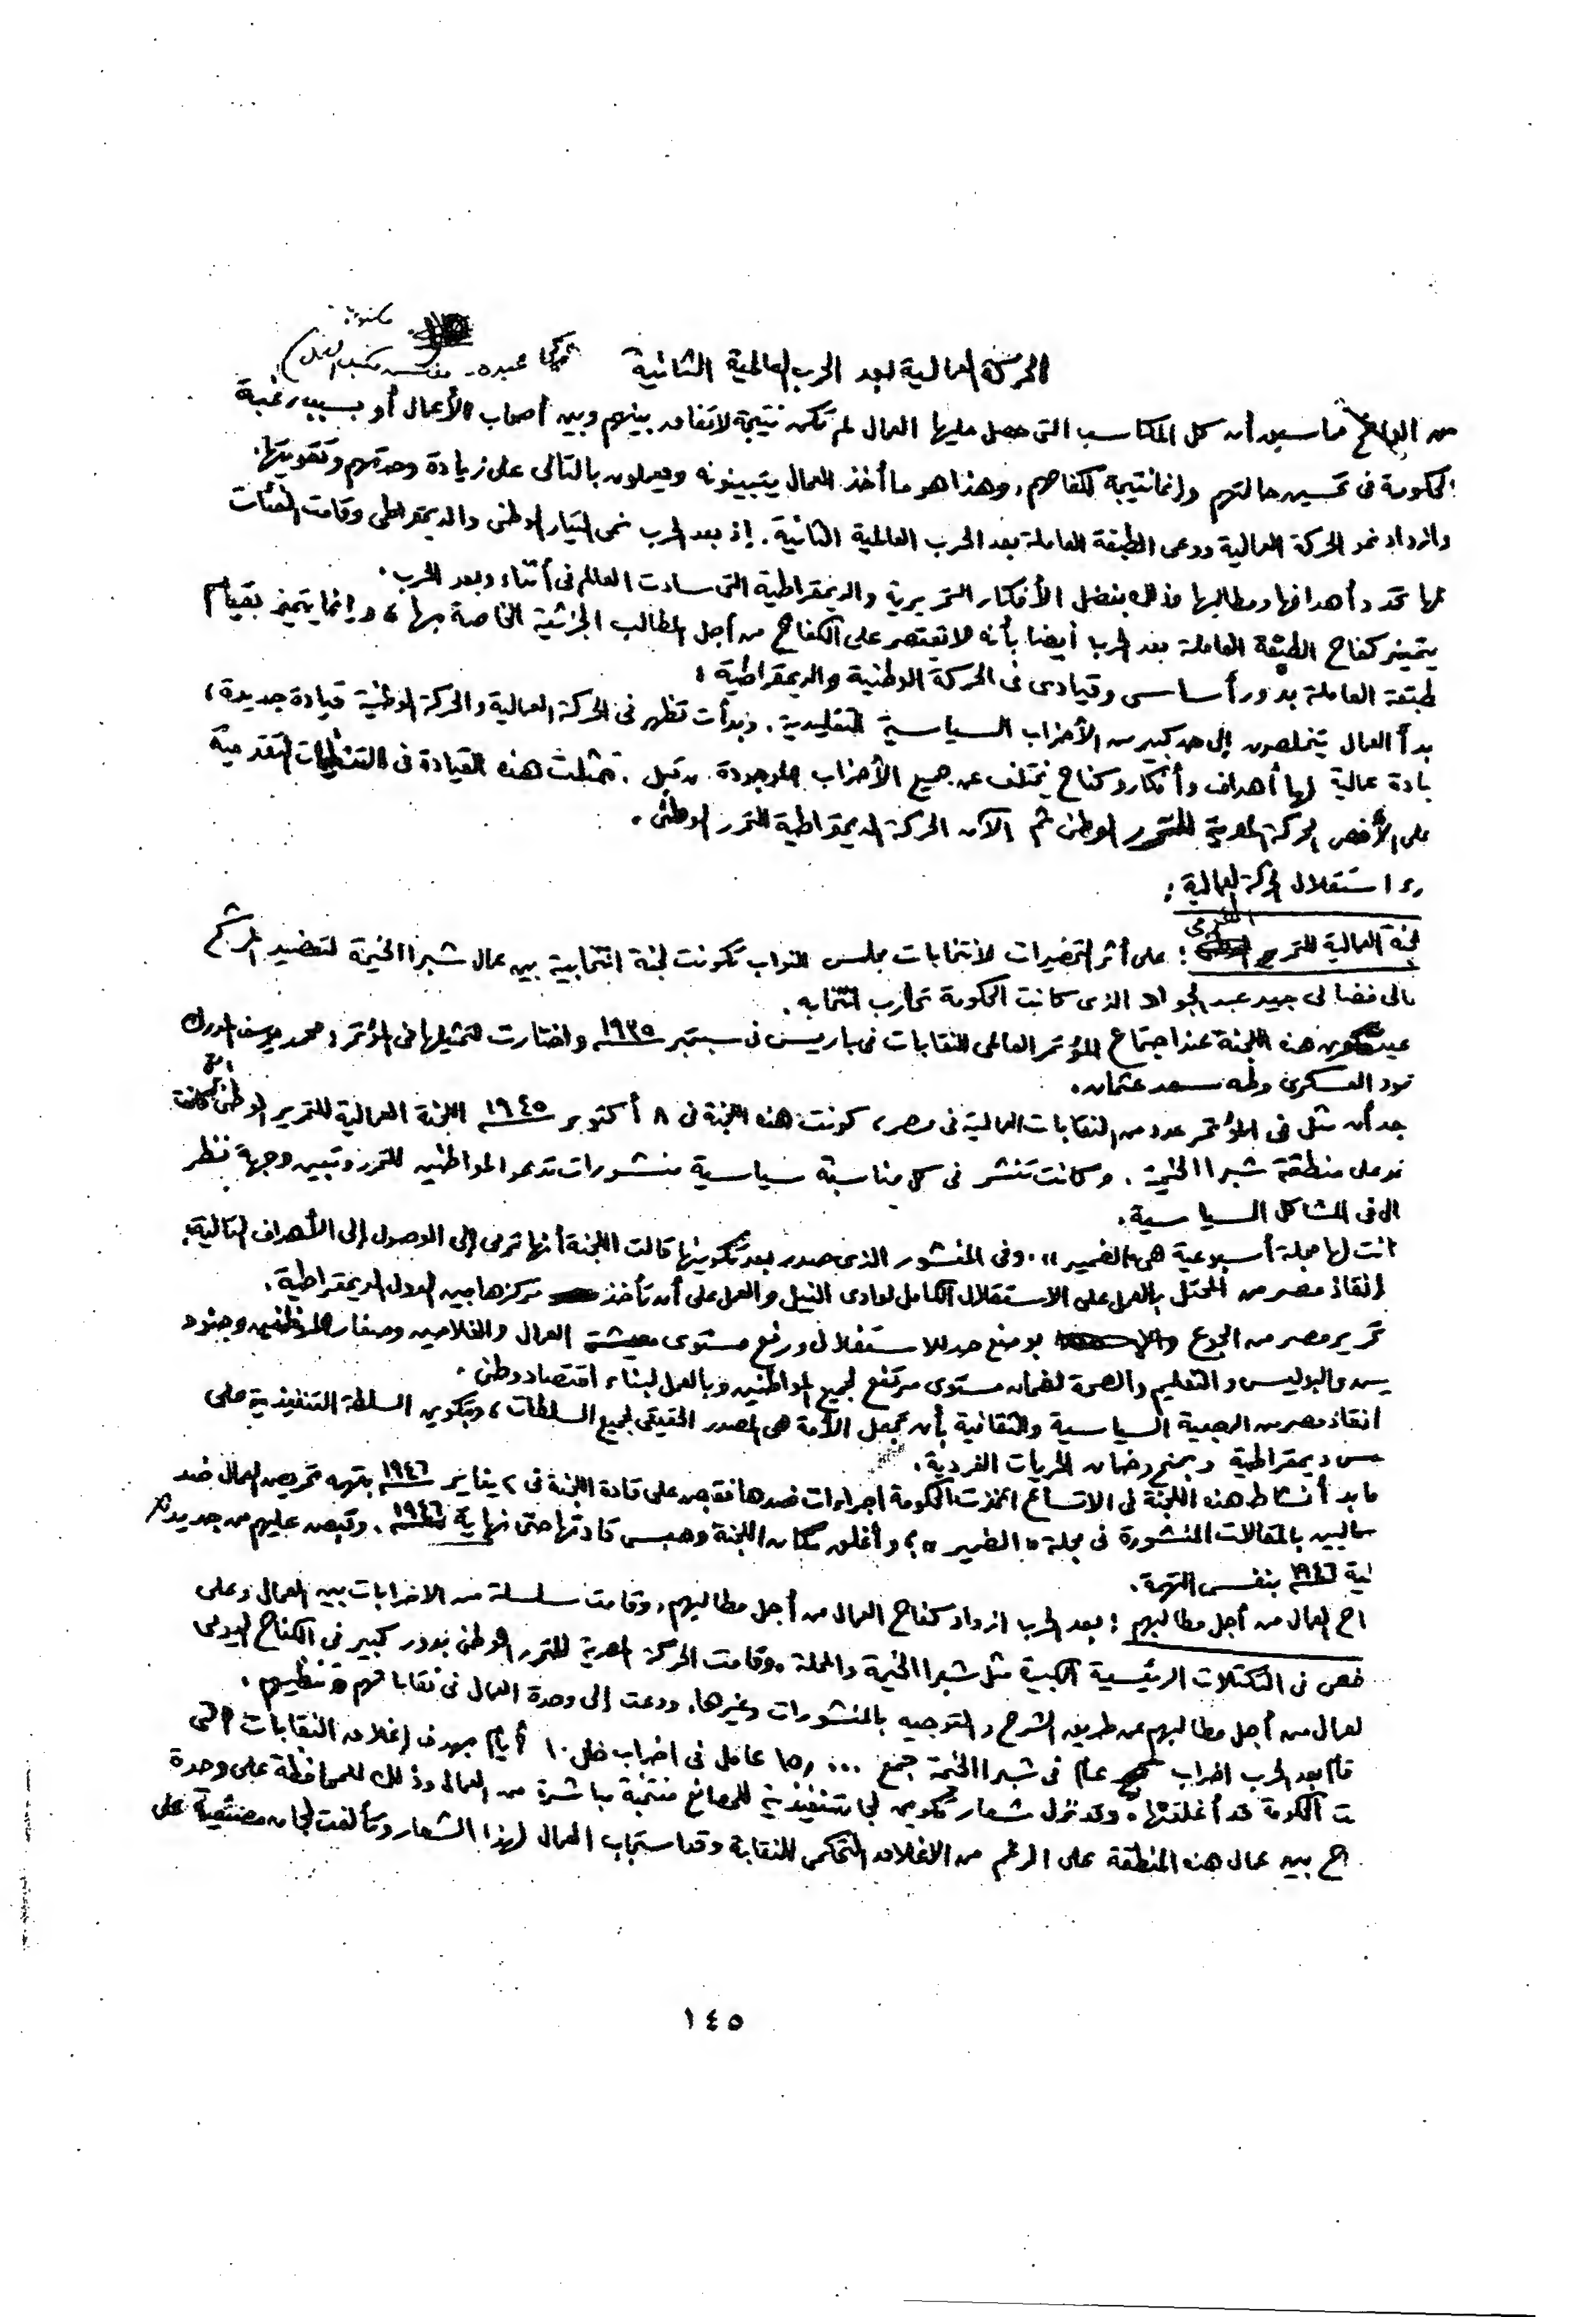 الحركة العمالية بعد الحرب العالمية الثانية
من الواضح مما سبق أن كل المكاسب التى حصل عليها العمال لم تكن نتيجة لاتفاق بينهم وبين أصحاب الأعمال أو بسبب رغبة
الحكومة فى تحسين حالتهم وإنما نتيجة لكفاحهم، وهذا هو ما أخذ العمال يتبينونه ويعملون بالتالى على زيادة وحدتهم وتقويتها.
وازداد نمو الحركة العمالية ووعى الطبقة العاملة بعد الحرب العالمية الثانية. إذ بعد الحرب نمى التيار الوطنى والديمقراطى وقامت الهيئات
لها تحدد أهدافها ومطالبها وذلك بفضل الأفكار التحريرية والديمقراطية التى سادت العالم فى أثناء وبعد الحرب.
يتميز كفاح الطبقة العاملة بعد الحرب أيضا بأنه لا يقتصر على الكفاح من أجل المطالب الجزئية الخاصة بها، وإنما يتميز بقيام
طبقة العاملة بدور أساسى وقيادى فى الحركة الوطنية والديمقراطية:
بدأ العمال يتخلصون إلى حد كبير من الأحزاب السياسية التقليدية. وبدأت تظهر فى الحركة العمالية والحركة الوطنية قيادة جديدة،
يادة عمالية لها أهداف وأفكار وكفاح يختلف عن جميع الأحزاب الموجودة من قبل. تمثلت هذه القيادة فى التنظيمات التقدمية
على الأخص الحركة المصرية للتحرر الوطنى ثم الآن الحركة الديمقراطية للتحرر الوطنى.
استقلال الحركة العمالية:
لجنة العمالية للتحرير القومى: على أثر التحضيرات لانتخابات مجلس النواب تكونت لجنة انتخابية بين عمال شبرا الخيمة لتعضيد المرشح
مالى فضالى عبد الجواد الذى كانت الحكومة تحارب انتخابه.
هذه اللجنة عند اجتماع المؤتمر العالمى للنقابات فى باريس فى سبتمبر ١٩٣٥ واختارت لتمثيلها فى المؤتمر: محمد يوسف المدرك
مود العسكرى وطه سعد عثمان.
عد أن مثل فى المؤتمر عدد من النقابات العمالية فى مصر، كونت هذه اللجنة فى ٨ أكتوبر ١٩٤٥ اللجنة العمالية للتحرير الوطنى كانت
على منطقة شبرا الخيمة. وكانت تنشر فى كل مناسبة سياسية منشورات تدعو المواطنين للتحرر وتبين وجهة نظر
ال فى المشاكل السياسية.
انت لها مجلة أسبوعية هى «الضمير». وفى المنشور الذى صدر بعد تكوينها قالت اللجنة أنها ترمى إلى الوصول إلى الأهداف التالية:
إنقاذ مصر من المحتل بالعمل على الاستقلال الكامل لوادى النيل والعمل على أن تأخذ مركزها بين الدول الديمقراطية.
تحرير مصر من الجوع بوضع حد للاستغلال ورفع مستوى معيشة العمال والفلاحين وصغار الموظفين وجنود
يس والبوليس والتعليم والصحة لضمان مستوى مرتفع لجميع المواطنين وبالعمل لبناء اقتصاد وطنى.
انقاذ مصر من الرجعية السياسية والثقافية بأن تجعل الأمة هى المصدر الحقيقى لجميع السلطات، وبتكوين السلطة التنفيذية على
سس ديمقراطية وبمنح وضمان الحريات الفردية.
ما بدأ نشاط هذه اللجنة فى الاتساع اتخذت الحكومة اجراءات ضدها فقبض على قادة اللجنة فى ٢ يناير ١٩٤٦ بتهمة تحريض العمال ضد
سماليين بالمقالات المنشورة فى مجلة «الضمير»؛ وأغلق مكان اللجنة وحبس قادتها حتى نهاية ١٩٤٦. وقبض عليهم من جديد
لية ١٩٤٦ بنفس التهمة.
اح العمال من أجل مطالبهم: بعد الحرب ازداد كفاح العمال من أجل مطالبهم، وقامت سلسلة من الاضرابات بين العمال وعلى
خص فى التكتلات الرئيسية الكبيرة مثل شبرا الخيمة والمحلة. وقامت الحركة المصرية للتحرر الوطنى بدور كبير فى الكفاح اليومى
لعمال من أجل مطالبهم عن طريق الشرح والتوجيه بالمنشورات وغيرها. ودعت إلى وحدة العمال فى نقاباتهم وتنظيمهم.
قام بعد الحرب اضراب عام فى شبرا الخيمة جمع ١٥,٠٠٠ عامل فى اضراب ظل ١٠ أيام بهدف إغلاق النقابات التى
ت الحكومة قد أغلقتها. وقد نزل شعار تكوين لجان تنفيذية للمصانع منتخبة مباشرة من العمال وذلك للمحافظة على وحدة
اح بين عمال هذه المنطقة على الرغم من الاغلاق التحكمى للنقابة وقد استجاب العمال لهذا الشعار وتألفت لجان مصنعية على
١٤٥